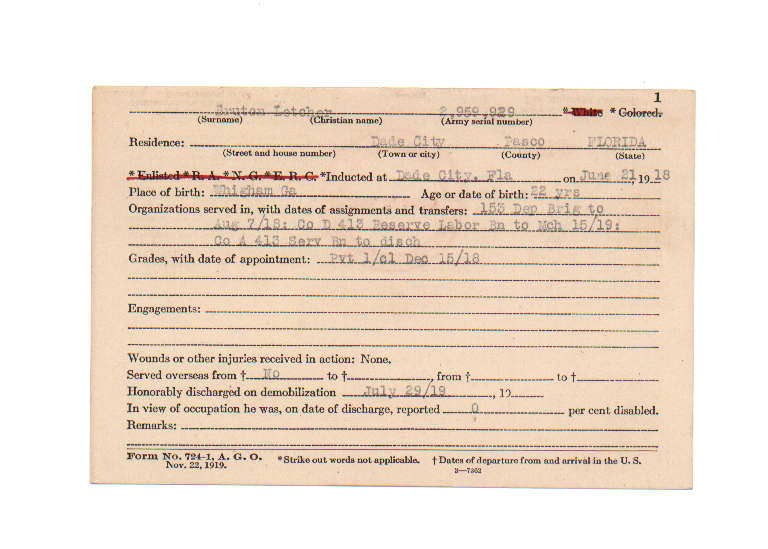 1
Bruton Letcher 2,959,929 *White *Colored.
(Surname) (Christian name) (Army serial number)
Residence: Dade City Pasco FLORIDA
(Street and house number) (Town or city) (County) (State)
*Enlisted *R. A. *N. G. *E. R. C. *Inducted at Dade City, Fla on June 21, 1918
Place of birth: Whigham Ga Age or date of birth: 22 yrs
Organizations served in, with dates of assignments and transfers: 153 Dep Brig to
Aug 7/18; Co D 413 Reserve Labor Bn to Mch 15/19;
Co A 413 Serv Bn to disch
Grades, with date of appointment: Pvt 1/cl Dec 15/18
Engagements:
Wounds or other injuries received in action: None.
Served overseas from † No to †, from † to †
Honorably discharged on demobilization July 29/19, 19
In view of occupation he was, on date of discharge, reported 0 per cent disabled.
Remarks:
Form No. 724-1, A. G. O. *Strike out words not applicable. † Dates of departure from and arrival in the U. S.
Nov. 22, 1919. 3—7362